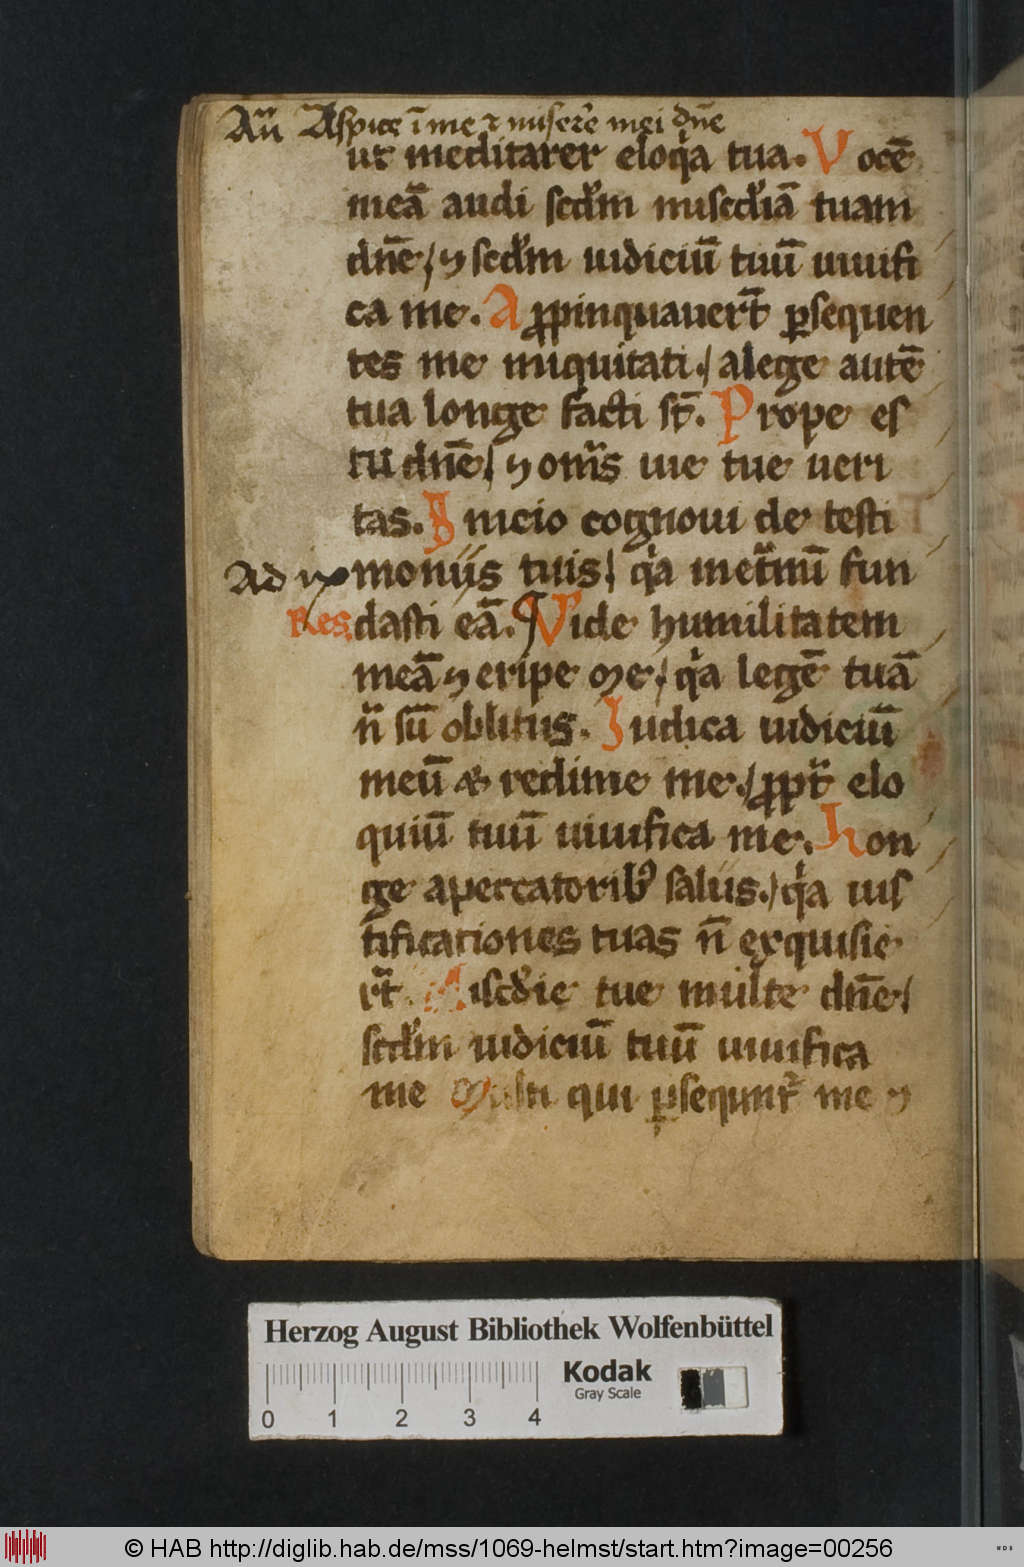 Añ Aspice ī me ⁊ misere᷒ mei dn̄e
ut meditarer eloq̍a tua. Vocē
meā audi scd̾m mi̅scd̾iā tuam
dn̄e/ ⁊ scd̾m iudiciū tuū uiuifi
ca me. Aꝓpinquauer̄t ꝑsequen
tes me iniquitati./ alege autē
tua longe facti st̄. Prope es
tu dn̄e/ ⁊ om̄s uie tue ueri
tas. Inicio cognoui de testi
Ad ix moniis tuis/ q̍a inet̾nū fun
Res dasti eā. ¶ Vide humilitatem
meā ⁊ eripe me/ q̍a legē tuā
n̄ sū oblitus. Iudica iudiciū
meū & redime me./ ꝓpt̾ elo
quiū tuū uiuifica me. Lon
ge apeccatorib᷒ salus./ q̍a ius
tificationes tuas n̄ exquisie
r̄t. Miscd̾ie tue multe dn̄e/
scd̾m iudiciū tuū uiuifica
me Multi qui ꝑsequnt᷒ me ⁊
Herzog August Bibliothek Wolfenbüttel
Kodak
Gray Scale
0 1 2 3 4
© HAB http://diglib.hab.de/mss/1069-helmst/start.htm?image=00256